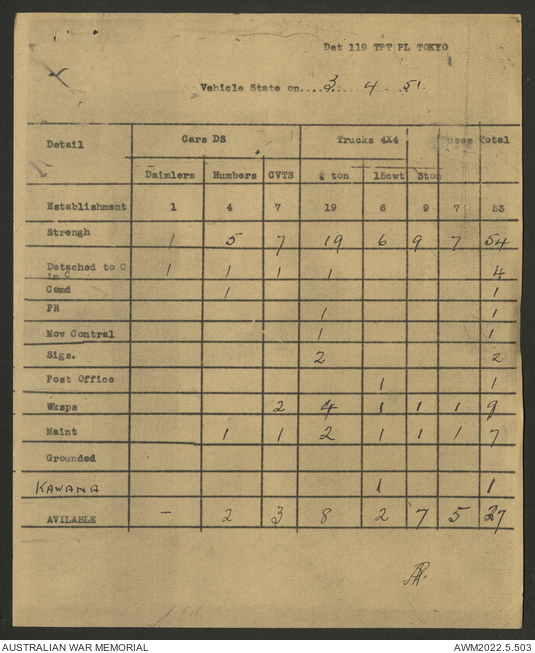 Det 119 TPT PL TOKYO
Vehicle State on....3... 4 . 51.
Detail Cars DS Trucks 4X4 Buses Total
Daimlers Humbers CVTS ¼ ton 15cwt 3ton
Establishment 1 4 7 19 6 9 7 53
Strengh 1 5 7 19 6 9 7 54
Detached to C in C 1 1 1 1 4
Comd 1 1
PR 1 1
Mov Contral 1 1
Sigs. 2 2
Post Office 1 1
Wksps 2 4 1 1 1 9
Maint 1 1 2 1 1 1 7
Grounded
KAWANA 1 1
AVILABLE - 2 3 8 2 7 5 27
AUSTRALIAN WAR MEMORIAL AWM2022.5.503